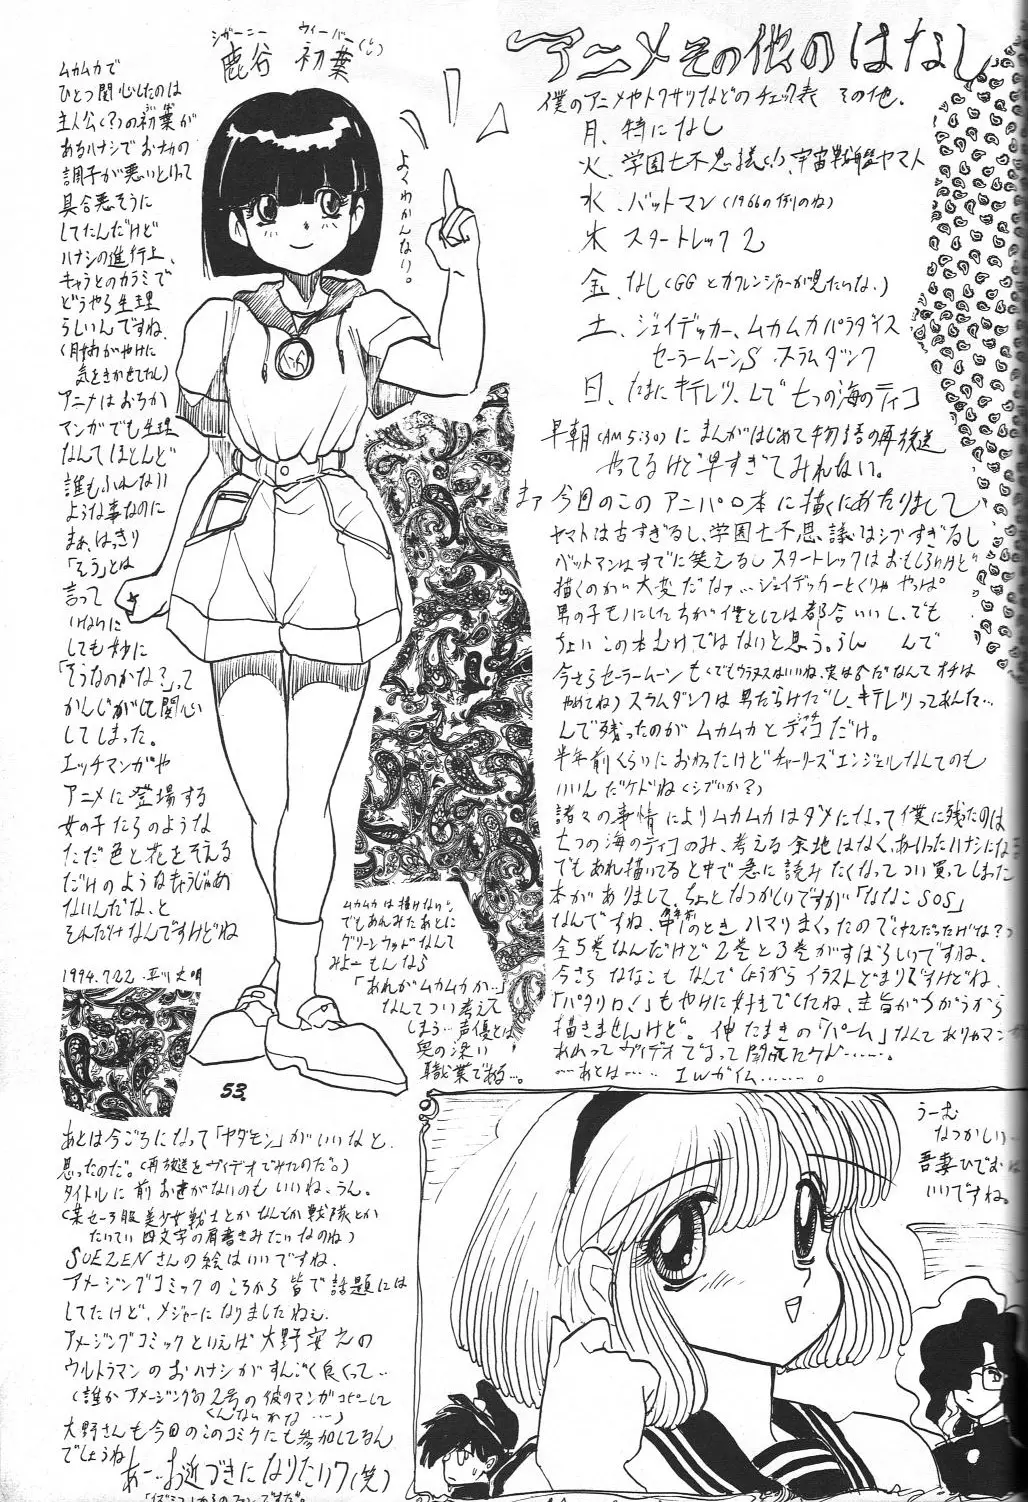 アニメその他のはなし
僕のアニメやトクサツなどのチェック表 その他.
月、特になし
火、学園七不思議(!)、宇宙戦艦ヤマト
水、バットマン(1966の例のね)
木 スタートレック2
金、なし(GGとカクレンジャーが見たいな.)
土、ジェイデッカー、ムカムカパラダイス
セーラームーンS スラムダンク
日、たまにキテレツ、して七つの海のティコ
早朝(AM5:30)にまんがはじめて物語の再放送
やってるけど早すぎてみれない。
まァ今回のこのアニパロ本に描くにあたりまして
ヤマトは古すぎるし、学園七不思議はシブすぎるし
バットマンはすでに笑えるしスタートレックはおもしろいけど
描くのが大変だなァ…ジェイデッカーとくりゃやっぱ
男の子モノにした方が僕としては都合いいし、でも
ちょいこの本むけではないと思う。うん んで
今さらセーラームーンも(でもウラヌスはいいね、実は♂だなんてオチは
やめてね)スラムダンクは男だらけだし、キテレツってあんた…
んで残ったのがムカムカとティコだけ。
半年前くらいにおわったけどチャーリーズエンジェルなんてのも
いいんだケドね(シブいか?)
諸々の事情によりムカムカはダメになって僕に残ったのは
七つの海のティコのみ、考える余地はなく、あーいったハナシにな
でもあれ描いてると中で急に読みたくなってつい買ってしまった
本がありまして、ちょとなつかしいですが「ななこSOS」
なんですね、のときハマリまくったので
全5巻なんだけど2巻と3巻がすばらしいですね.
今さらななこもなんでしょうからイラストどまりですけどね.
「パタリロ!」もやけに好きでしたね、主旨がちがうから
描きませんけど。伸たまきの「パーム」なんて
……あとは…… エルガイム………。
鹿谷 初葉
シガーニー
ウィーバー
よくわかんない。
ムカムカで
ひとつ関心したのは
主人公(?)の初葉が
あるハナシでおナカの
調子が悪いといって
具合悪そうに
してたんだけど
ハナシの進行上、
キャラとのカラミで
どうやら生理
らしいんですね、
気をきかせてたし)
アニメはおろか
マンガでも生理
なんてほとんど
誰もふれない
ような事なのに
まぁ、はっきり
「そう」とは
言って
いないに
しても妙に
「そうなのかな?」って
かんじがして関心
してしまった。
エッチマンガや
アニメに登場する
女の子たちのような
ただ色と花をそえる
だけのようなもんじゃあ
ないんだな、と
それだけなんですけどね
1994.7.22.
ムカムカは描けない。
でもあれみたあとに
グリーンウッドなんて
みよーもんなら
「あれがムカムカか…」
なんてつい考えて
しまう…声優とは
奥の深い
職業である…。
53.
あとは今ごろになって「ヤダモン」がいいなと.
思ったのだ。(再放送をヴィデオでみたのだ。)
タイトルに前おきがないのもいいね、うん。
(某セーラ服美少女戦士とかなんでか戦隊とか
たいてい四文字の肩書きみたいなのね)
SUEZENさんの絵はいいですね.
アメージングコミックのころから皆で話題には
してたけど、メジャーになりましたねぇ.
アメージングコミックといえば大野安之の
ウルトラマンのおハナシがすんごく良くって…
(誰かアメージングの2号の彼のマンガコピーして
くんないかな…)
大野さんも今回のこのコミケにも参加してるん
でしょうね
あー…お近づきになりたい?(笑)
うーむ
なつかしい…
吾妻ひでおは
いいですね。